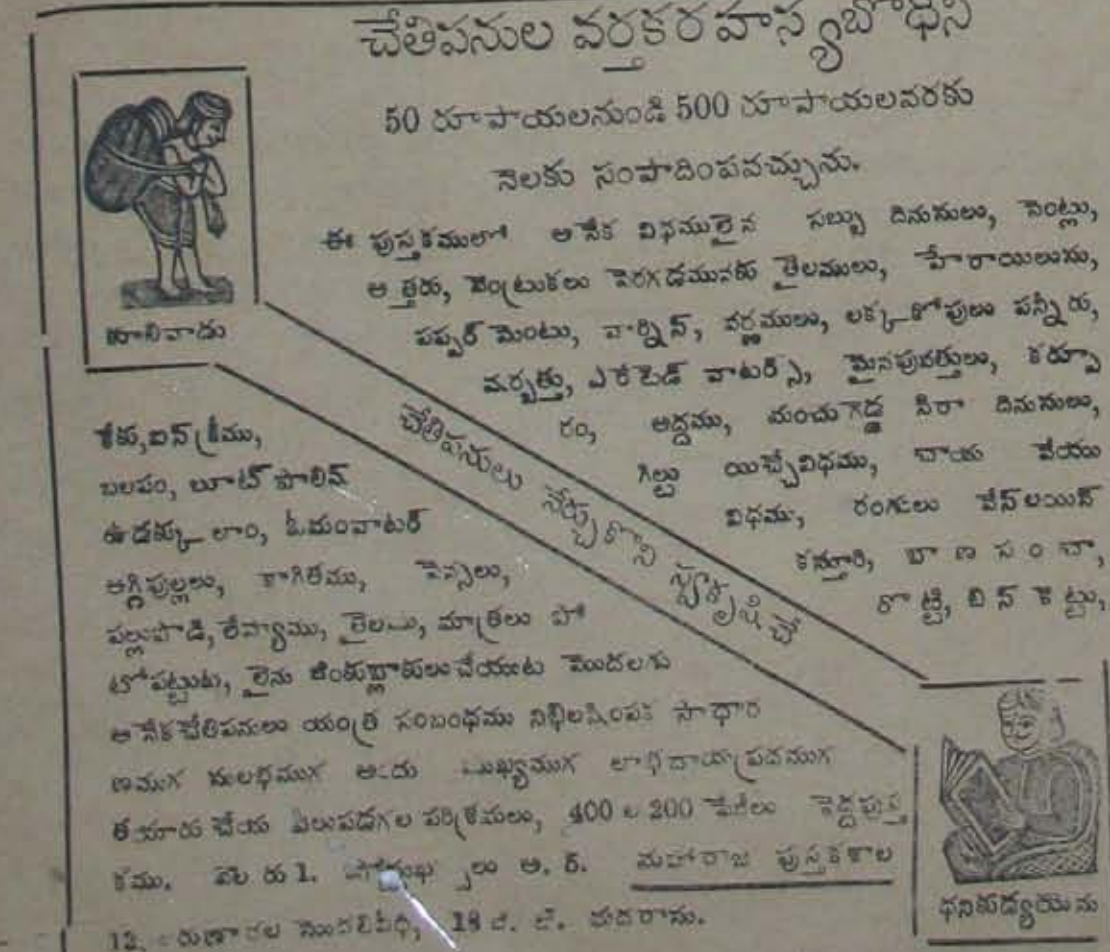 చేతిపనుల వర్తకరహస్యబోధిని
50 రూపాయలనుండి 500 రూపాయలవరకు
నెలకు సంపాదింపవచ్చును.
కూలివాడు
ఈ పుస్తకములో అనేక విధములైన సబ్బు దినుసులు, సెంట్లు,
అత్తరు, వెంట్రుకలు పెరగడమునకు తైలములు, హేరాయిలును,
పప్పర్ మెంటు, వార్నిష్, వర్ణములు, లక్క కోపులు పన్నీరు,
షర్బత్తు, ఎరేటెడ్ వాటర్స్, మైనపువత్తులు, కర్పూ
రం, అద్దము, మంచుగెడ్డ సిరా దినుసులు,
గిల్టు యిచ్చేవిధము, చాయ వేయు
విధము, రంగులు వేస్ లయిన్
కస్తూరి, బా ణ సం చా,
రొట్టి, బి స్ కె ట్టు,
చేతిపనులు నేర్చుకొని
కేకు, ఐస్ క్రీము,
బలపం, బూట్ పాలిష్
ఉడక్కులాం, ఓమంవాటర్
అగ్గిపుల్లలు, కాగితము, పెన్సలు,
పల్లుపొడి, లేహ్యము, తైలము, మాత్రలు ఫో
టోపట్టుట, లైను జింకుబ్లాకులుచేయుట మొదలగు
అనేకచేతిపనులు యంత్ర సంబంధము సాధార
ణముగ సులభముగ అందు ముఖ్యముగ లాభదాయప్రదముగ
తయారు చేయ వీలుపడగల పరిశ్రమలు, 400 ల 200 పేజీలు పెద్దపుస్త
కము. వెల రు 1. అ. ర. మహారాజ పుస్తకశాల
12, మొదలివీధి, 18 జి. టి. మదరాసు.
ధనికుడ్యయెను